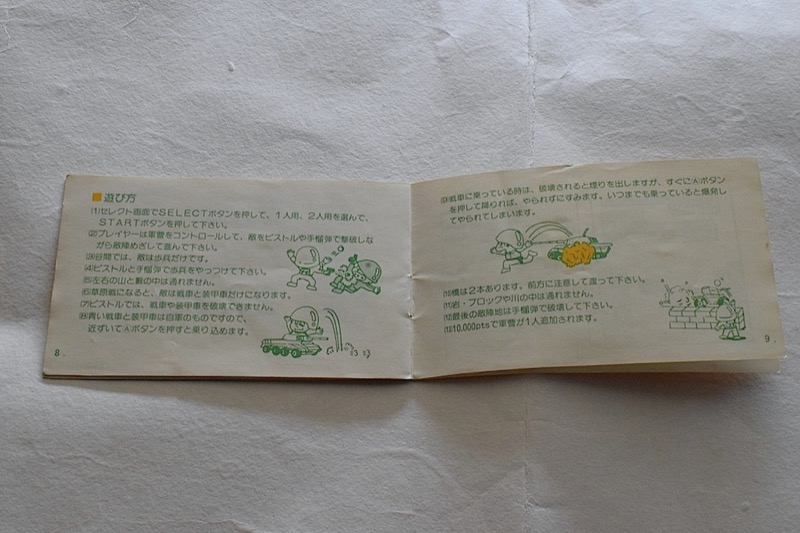 ■遊び方
(1)セレクト画面でSELECTボタンを押して、1人用、2人用を選んで、
STARTボタンを押して下さい。
(2)プレイヤーは軍曹をコントロールして、敵をピストルや手榴弾で撃破しな
がら敵陣めざして進んで下さい。
(3)谷間では、敵は歩兵だけです。
(4)ピストルと手榴弾で歩兵をやっつけて下さい。
(5)左右の山と藪の中は通れません。
(6)草原戦になると、敵は戦車と装甲車だけになります。
(7)ピストルでは、戦車や装甲車を破壊できません。
(8)青い戦車と装甲車は自軍のものですので、
近ずいてⒶボタンを押すと乗り込めます。
8
(9)戦車に乗っている時は、破壊されると煙りを出しますが、すぐにⒶボタン
を押して降りれば、やられずにすみます。いつまでも乗っていると爆発し
てやられてしまいます。
(10)橋は2本あります。前方に注意して渡って下さい。
(11)岩・ブロックや川の中は通れません。
(12)最後の敵陣地は手榴弾で破壊して下さい。
(13)10,000ptsで軍曹が1人追加されます。
9